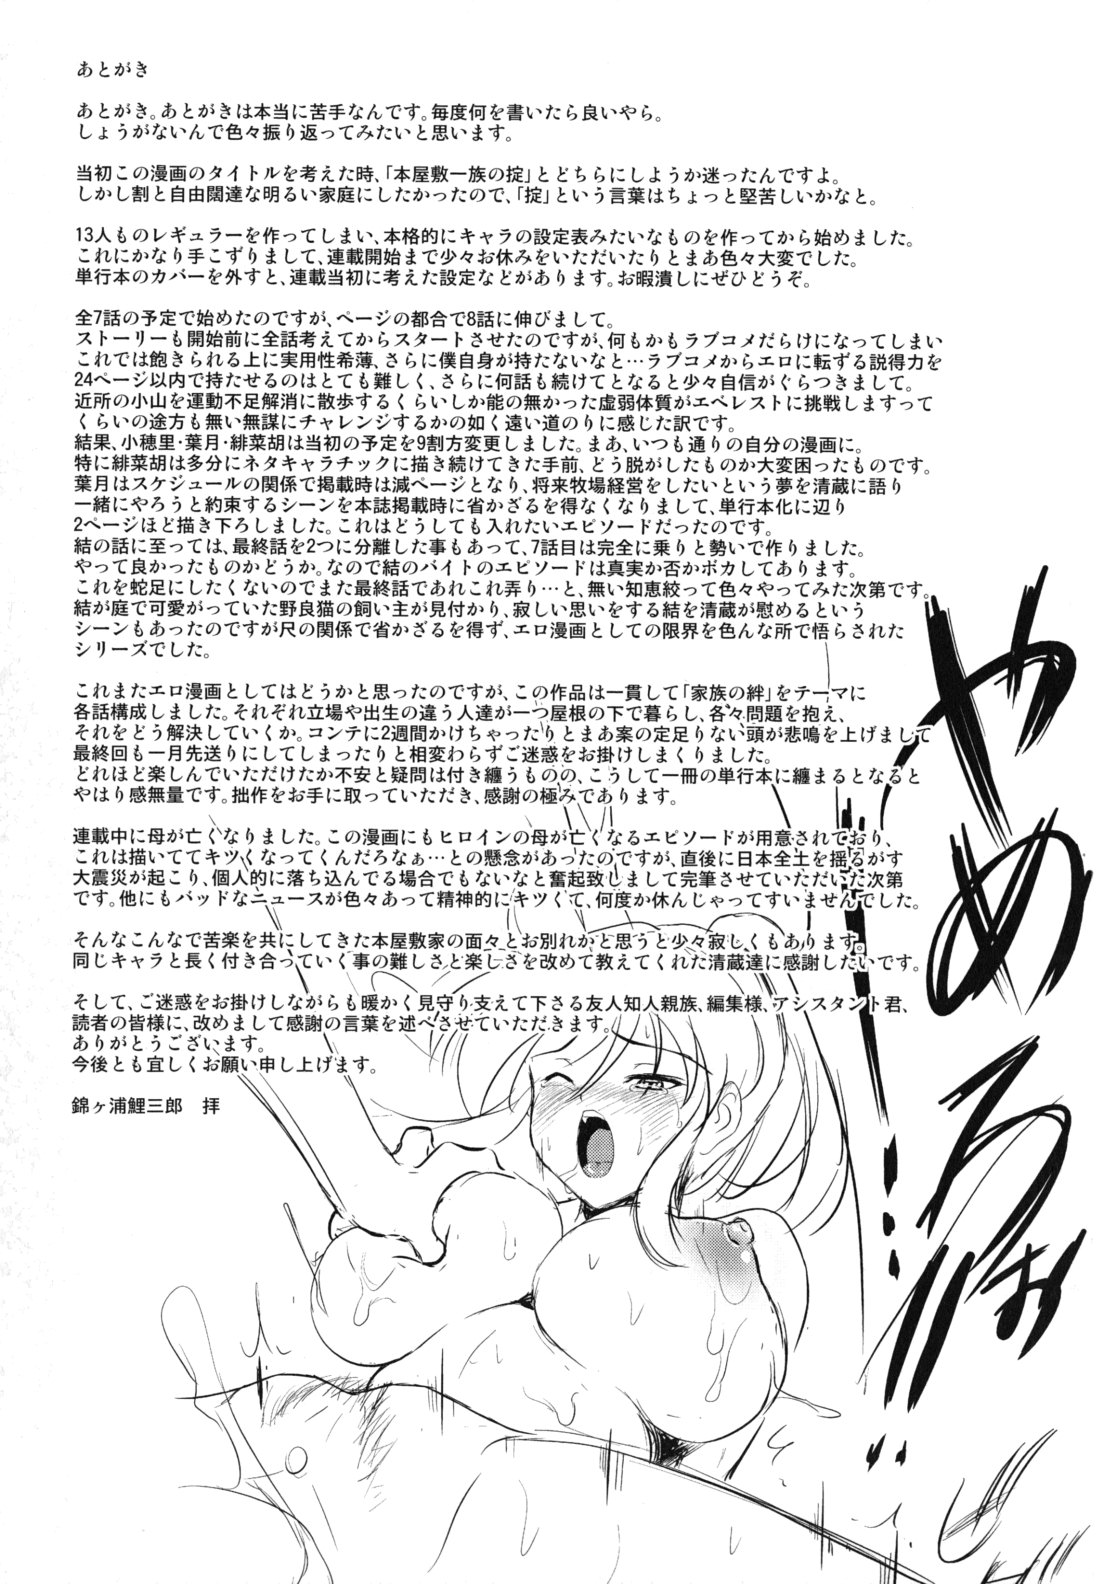 あとがき
あとがき。あとがきは本当に苦手なんです。毎度何を書いたら良いやら。
しょうがないんで色々振り返ってみたいと思います。
当初この漫画のタイトルを考えた時、「本屋敷一族の掟」とどちらにしようか迷ったんですよ。
しかし割と自由闊達な明るい家庭にしたかったので、「掟」という言葉はちょっと堅苦しいかなと。
13人ものレギュラーを作ってしまい、本格的にキャラの設定表みたいなものを作ってから始めました。
これにかなり手こずりまして、連載開始まで少々お休みをいただいたりとまあ色々大変でした。
単行本のカバーを外すと、連載当初に考えた設定などがあります。お暇潰しにぜひどうぞ。
全7話の予定で始めたのですが、ページの都合で8話に伸びまして。
ストーリーも開始前に全話考えてからスタートさせたのですが、何もかもラブコメだらけになってしまい
これでは飽きられる上に実用性希薄、さらに僕自身が持たないなと…ラブコメからエロに転ずる説得力を
24ページ以内で持たせるのはとても難しく、さらに何話も続けてとなると少々自信がぐらつきまして。
近所の小山を運動不足解消に散歩するくらいしか能の無かった虚弱体質がエベレストに挑戦しますって
くらいの途方も無い無謀にチャレンジするかの如く遠い道のりに感じた訳です。
結果、小穂里・葉月・緋菜胡は当初の予定を9割方変更しました。まあ、いつも通りの自分の漫画に。
特に緋菜胡は多分にネタキャラチックに描き続けてきた手前、どう脱がしたものか大変困ったものです。
葉月はスケジュールの関係で掲載時は減ページとなり、将来牧場経営をしたいという夢を清蔵に語り
一緒にやろうと約束するシーンを本誌掲載時に省かざるを得なくなりまして、単行本化に辺り
2ページほど描き下ろしました。これはどうしても入れたいエピソードだったのです。
結の話に至っては、最終話を2つに分離した事もあって、7話目は完全に乗りと勢いで作りました。
やって良かったものかどうか。なので結のバイトのエピソードは真実か否かボカしてあります。
これを蛇足にしたくないのでまた最終話であれこれ弄り…と、無い知恵絞って色々やってみた次第です。
結が庭で可愛がっていた野良猫の飼い主が見付かり、寂しい思いをする結を清蔵が慰めるという
シーンもあったのですが尺の関係で省かざるを得ず、エロ漫画としての限界を色んな所で悟らされた
シリーズでした。
これまたエロ漫画としてはどうかと思ったのですが、この作品は一貫して「家族の絆」をテーマに
各話構成しました。それぞれ立場や出生の違う人達が一つ屋根の下で暮らし、各々問題を抱え、
それをどう解決していくか。コンテに2週間かけちゃったりとまあ案の定足りない頭が悲鳴を上げまして
最終回も一月先送りにしてしまったりと相変わらずご迷惑をお掛けしまくりました。
どれほど楽しんでいただけたか不安と疑問は付き纏うものの、こうして一冊の単行本に纏まるとなると
やはり感無量です。拙作をお手に取っていただき、感謝の極みであります。
連載中に母が亡くなりました。この漫画にもヒロインの母が亡くなるエピソードが用意されており、
これは描いててキツくなってくんだろなぁ…との懸念があったのですが、直後に日本全土を揺るがす
大震災が起こり、個人的に落ち込んでる場合でもないなと奮起致しまして完筆させていただいた次第
です。他にもバッドなニュースが色々あって精神的にキツくて、何度か休んじゃってすいませんでした。
そんなこんなで苦楽を共にしてきた本屋敷家の面々とお別れかと思うと少々寂しくもあります。
同じキャラと長く付き合っていく事の難しさと楽しさを改めて教えてくれた清蔵達に感謝したいです。
そして、ご迷惑をお掛けしながらも暖かく見守り支えて下さる友人知人親族、編集様、アシスタント君、
読者の皆様に、改めまして感謝の言葉を述べさせていただきます。
ありがとうございます。
今後とも宜しくお願い申し上げます。
錦ヶ浦鯉三郎　拝
やめろぉ